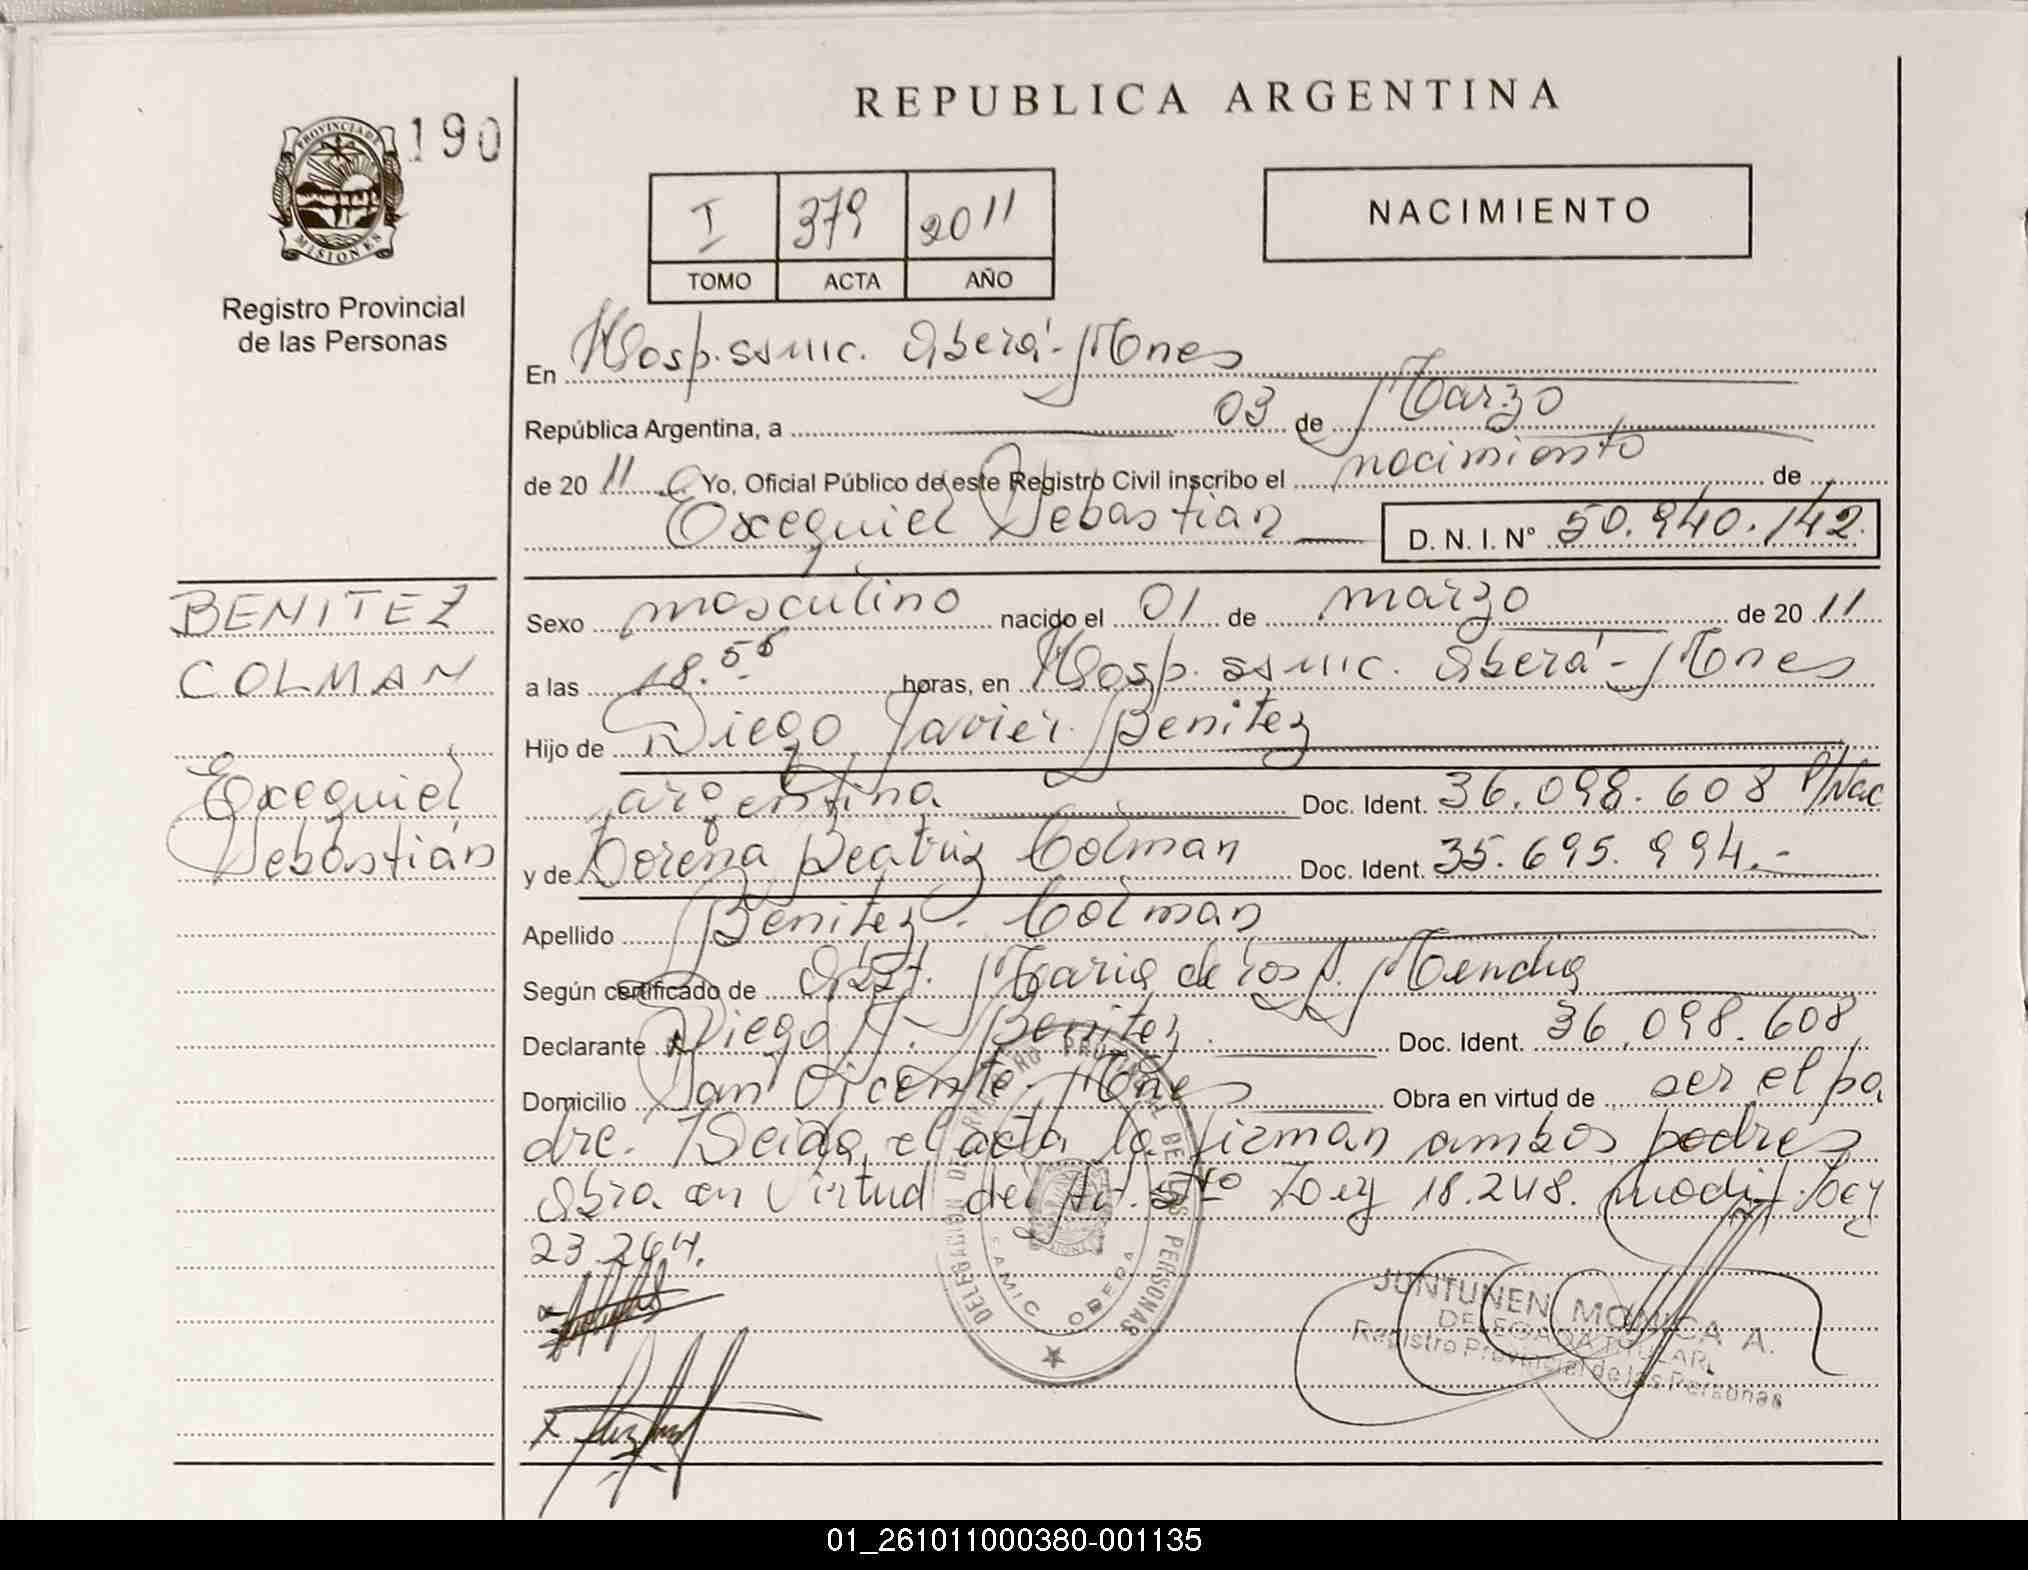 REPUBLICA ARGENTINA
190
PROVINCIA DE
MISIONES
Registro Provincial
de las Personas
I 379 2011
TOMO ACTA AÑO
NACIMIENTO
En Hosp. SAMIC. Oberá - Mnes
República Argentina, a 03 de Marzo
de 2011 Yo, Oficial Público de este Registro Civil inscribo el nacimiento de
Exequiel Sebastián D. N. I. Nº 50.940.142
BENITEZ
COLMAN
Exequiel
Sebastián
Sexo masculino nacido el 01 de marzo de 2011
a las 18.55 horas, en Hosp. SAMIC. Oberá - Mnes
Hijo de Diego Javier Benitez
argentina Doc. Ident. 36.098.608 P/Nac
y de Lorena Beatriz Colman Doc. Ident. 35.695.994.-
Apellido Benitez - Colman
Según certificado de Obst. Maria de los A. Mendez
Declarante Diego J. Benitez Doc. Ident. 36.098.608
Domicilio San Vicente - Mnes Obra en virtud de ser el pa
dre. Leida el acta la firman ambos padres
Obra en Virtud del Art. 5to Ley 18.248. modif. Ley
23.264.
DELEGACION DEL REGISTRO PROVINCIAL DE LAS PERSONAS
SAMIC OBERA
JUNTUNEN MONICA A.
DELEGADA TITULAR
Registro Provincial de las Personas
01_261011000380-001135